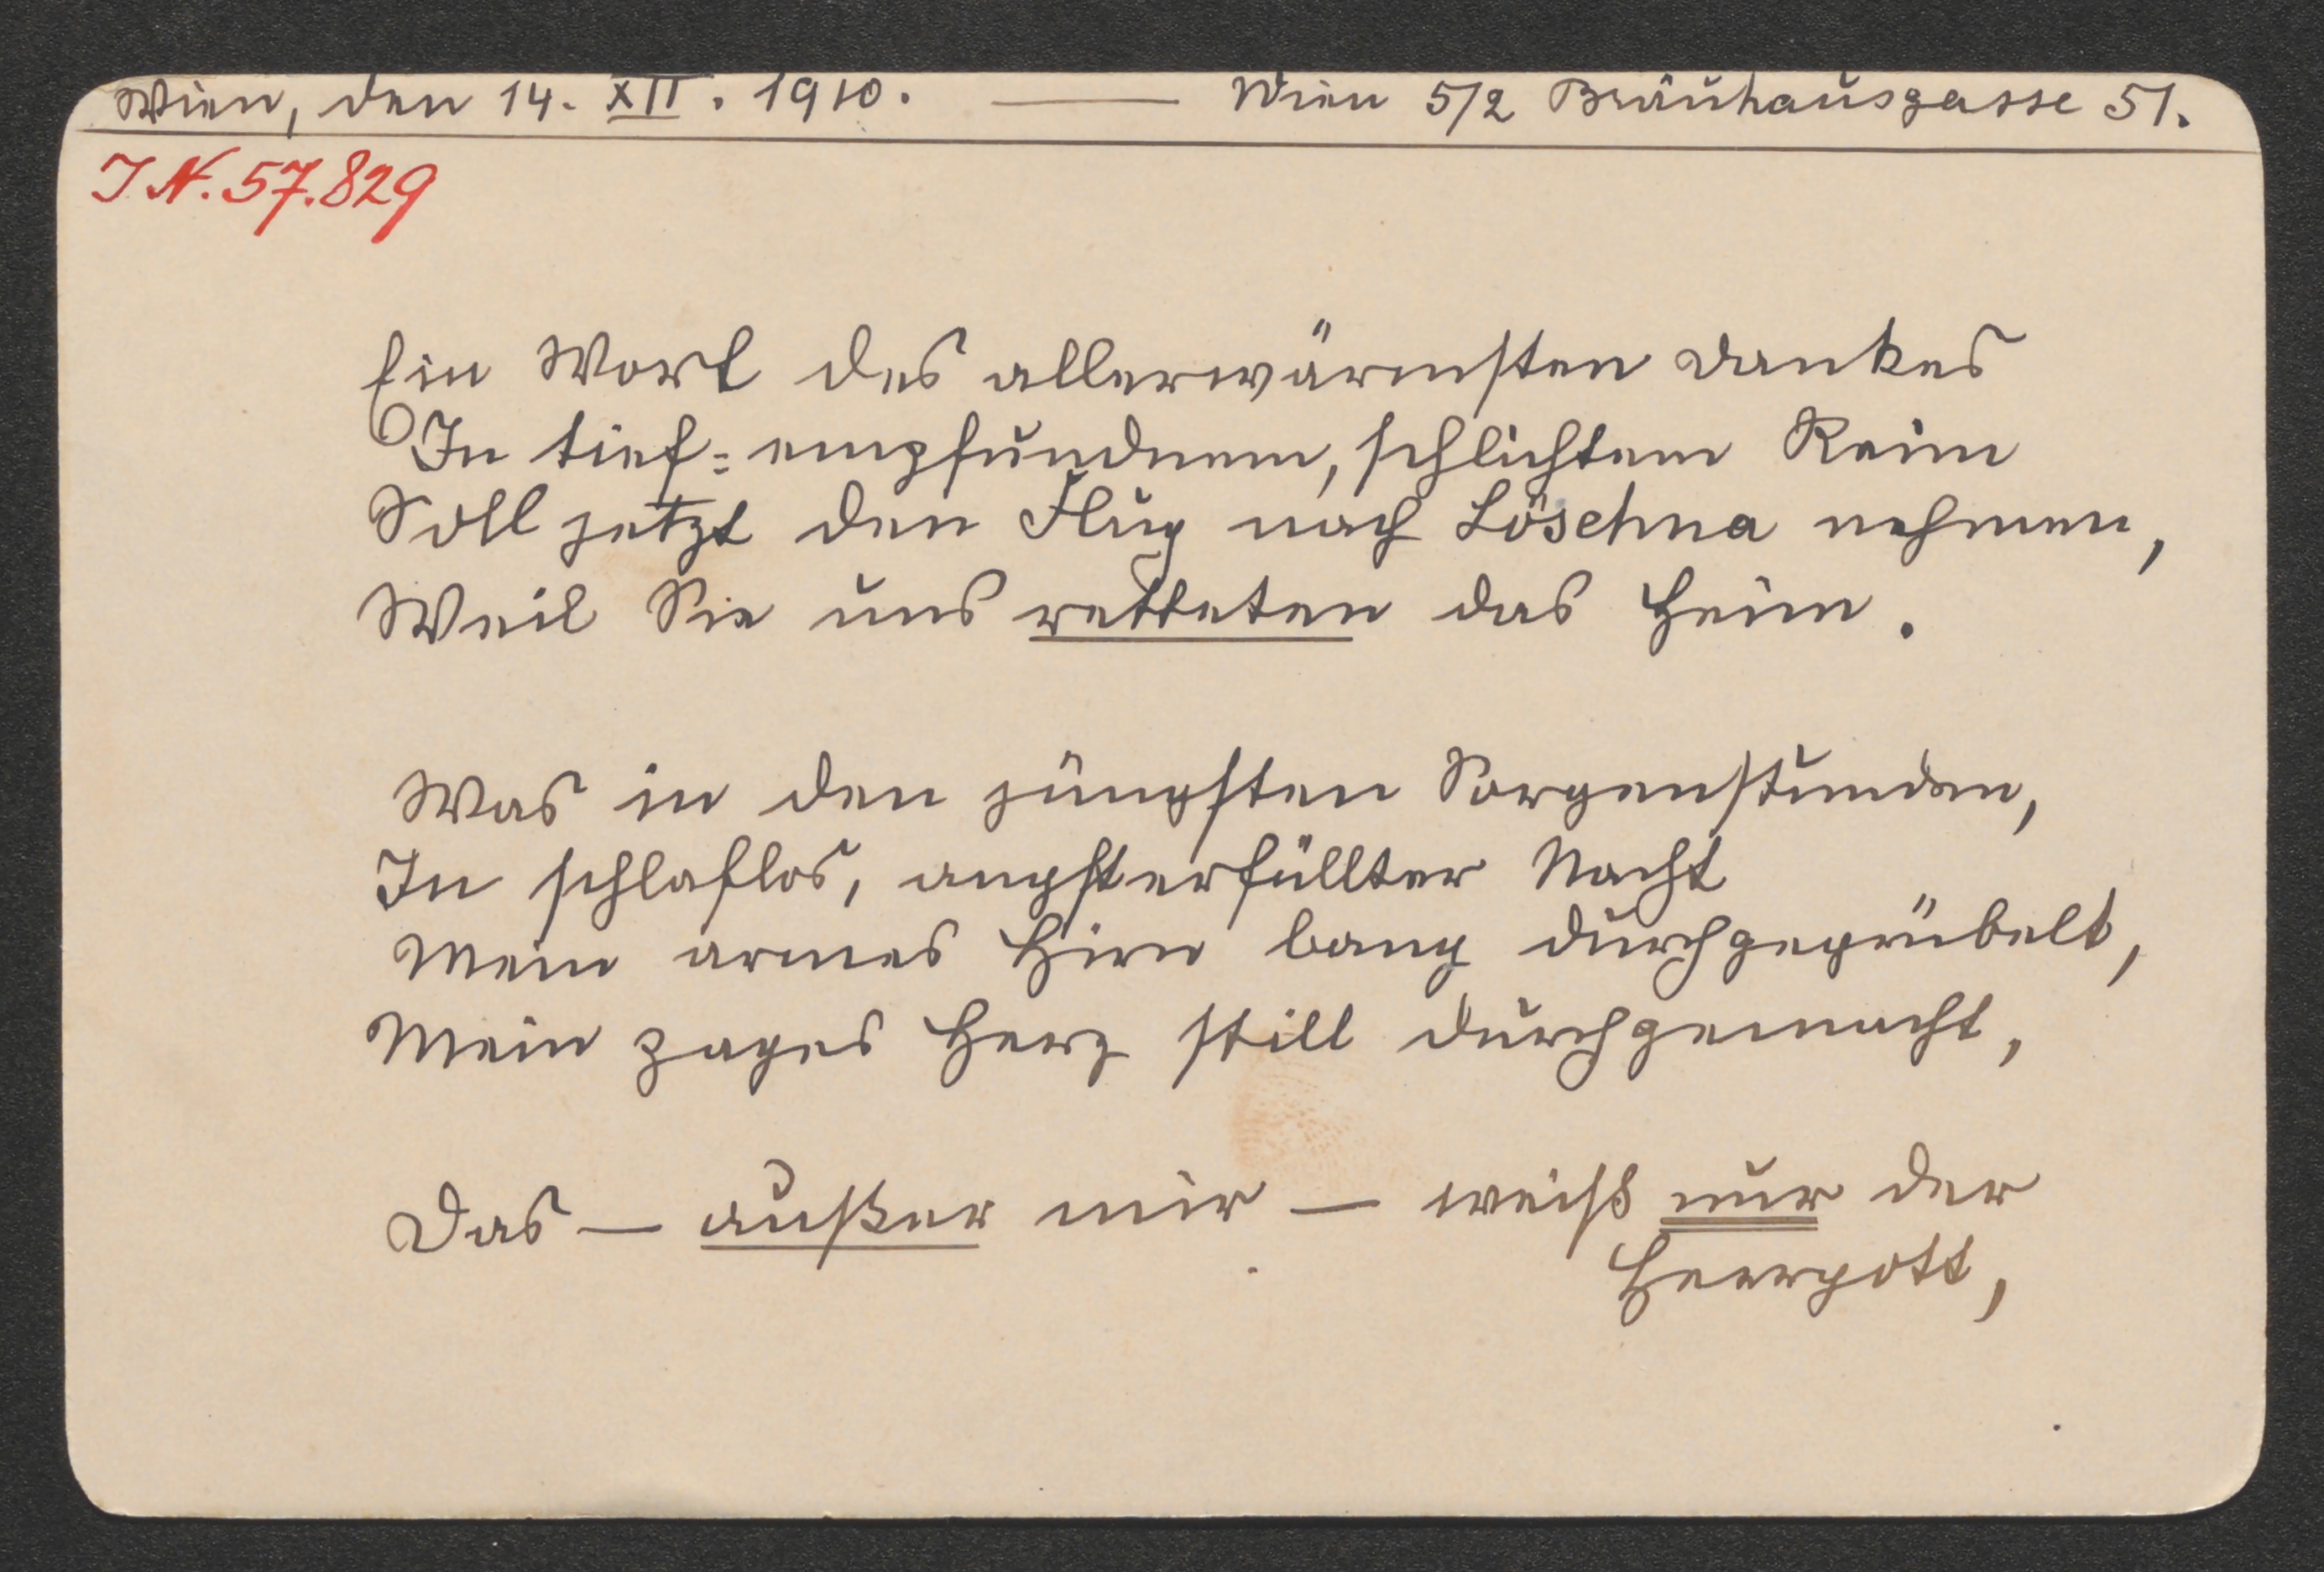 Wien, den 14. XII. 1910. — Wien 5/2 Bräuhausgasse 51.
I.N. 57.829
Ein Wort des allerwärmsten Dankes
In tief=empfundnem, schlichtem Reim
Soll jetzt den Flug nach Löschna nehmen,
Weil Sie uns retteten das Heim.
Was in den jüngsten Sorgenstunden,
In schlaflos, angsterfüllter Nacht
Mein armes Hirn bang durchgegrübelt,
Mein zages Herz still durchgemacht,
Das — außer mir — weiß nur der
Herrgott,